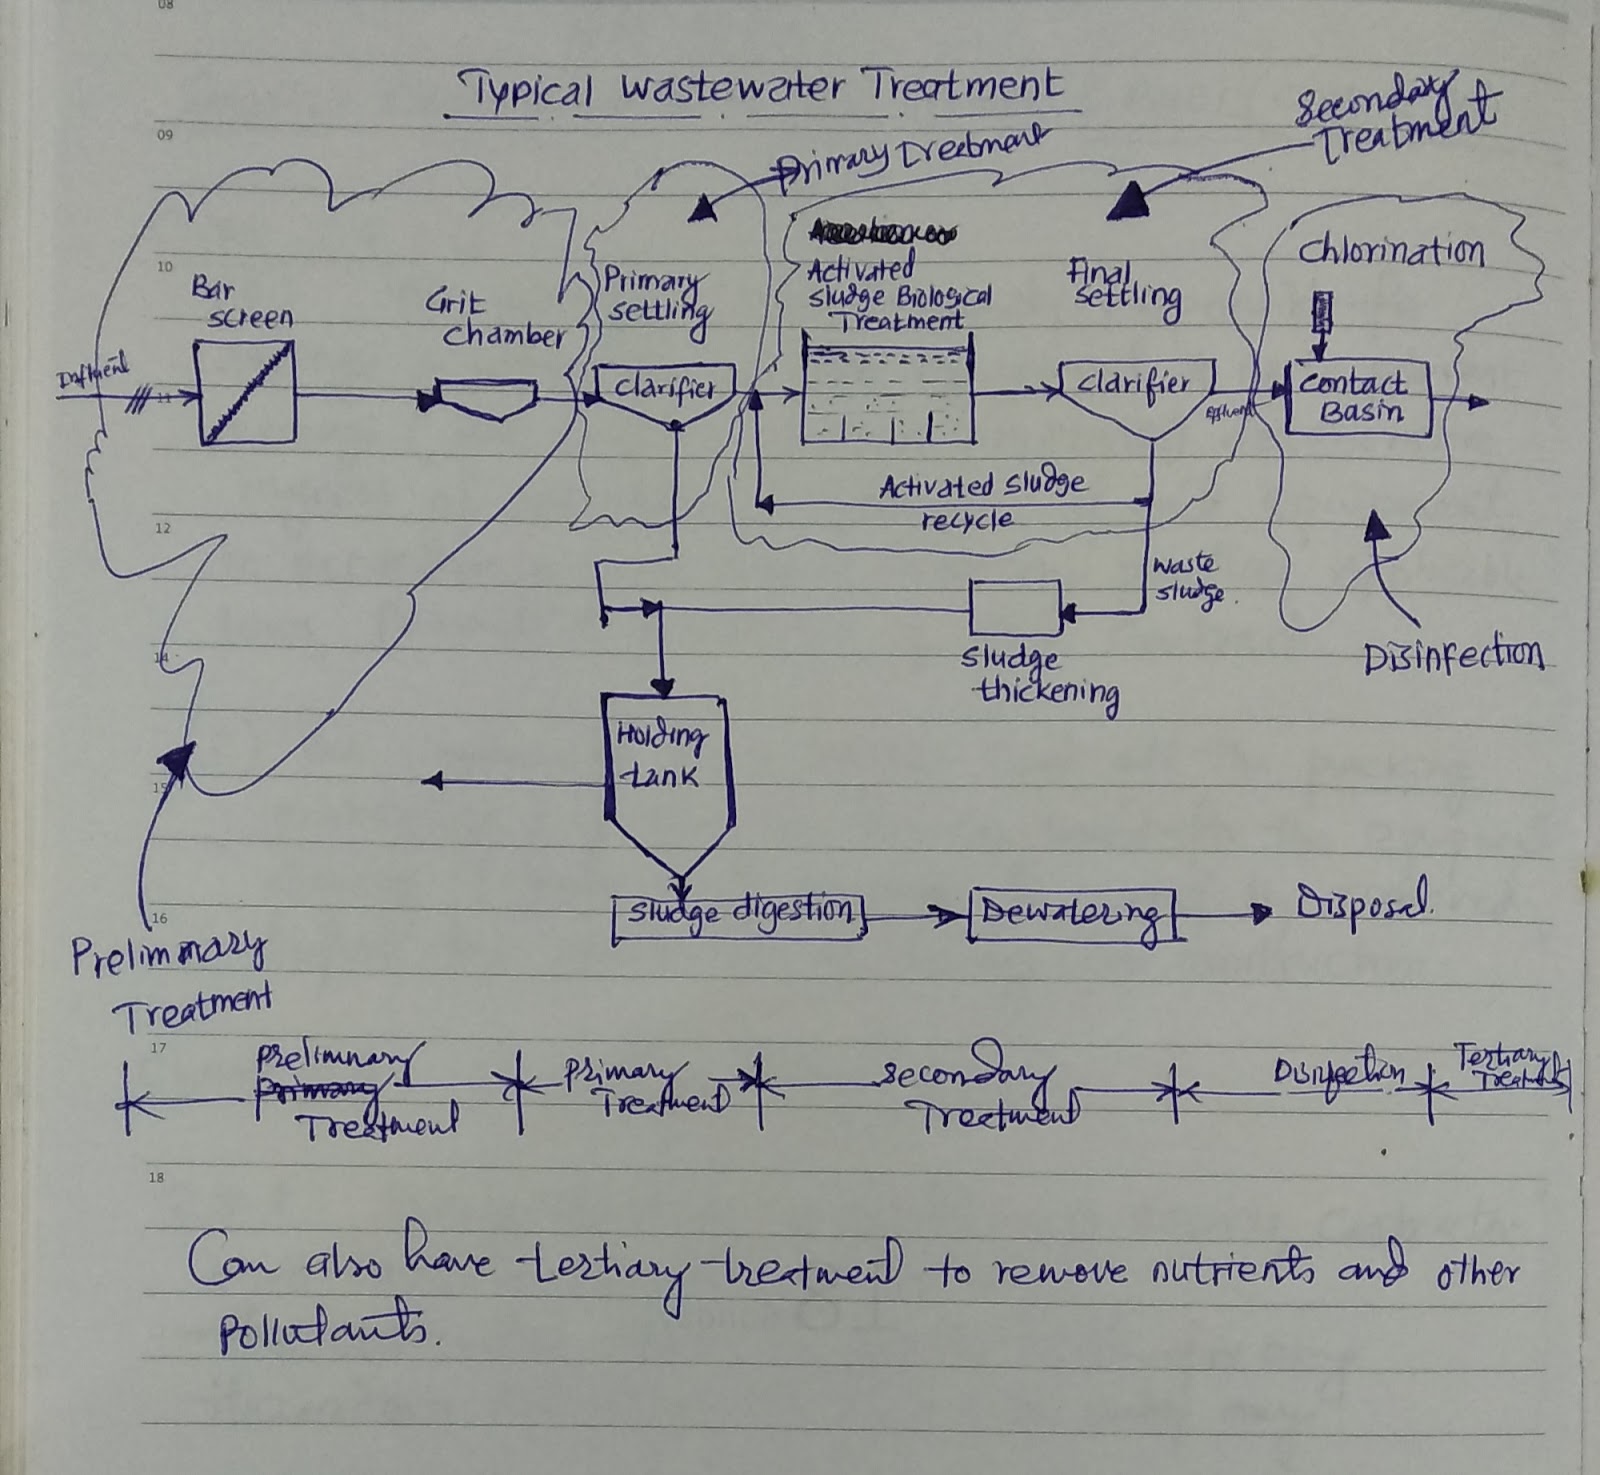 08
Typical Wastewater Treatment
Secondary
Treatment
09
Primary Treatment
10
Chlorination
Bar
screen
Grit
chamber
Primary
settling
Activated
sludge Biological
Treatment
Final
settling
Influent
11
clarifier
clarifier
Effluent
Contact
Basin
Activated sludge
recycle
12
waste
sludge.
Disinfection
14
sludge
thickening
Holding
tank
15
16
sludge digestion
Dewatering
Disposal.
Preliminary
Treatment
17
Preliminary
Primary
Treatment
Primary
Treatment
Secondary
Treatment
Disinfection
Tertiary
Treatment
18
Can also have tertiary treatment to remove nutrients and other
pollutants.